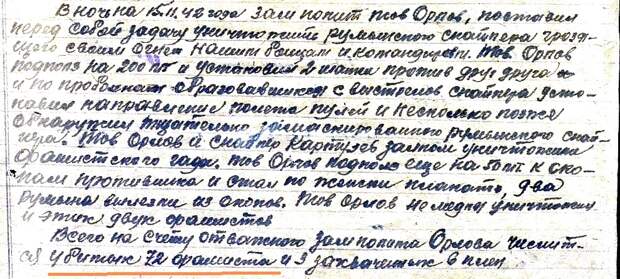 В ночь на 15.11.42 года зам полит тов Орлов, поставил
перед собой задачу уничтожить румынского снайпера грозя-
щего своим огнем нашим бойцам и командирам. Тов. Орлов
подполз на 200 мт и установил 2 каски против друг друга
и по пробоинам образовавшихся с выстрела снайпера уста-
новил направление полета пулей и несколько позже
обнаружил тщательно замаскированного румынского снай-
пера. Тов Орлов и снайпер Картузев залпом уничтожили
фашистского гада. тов Орлов подполз еще на 50 мт. к око-
пам противника и стал по женски плакать, два
румына вылезли из окопов. Тов Орлов немедля уничтожил
и этих двух фашистов
Всего на счету отважного зам полита Орлова числит-
ся убитых 72 фашиста и 3 захваченых в плен